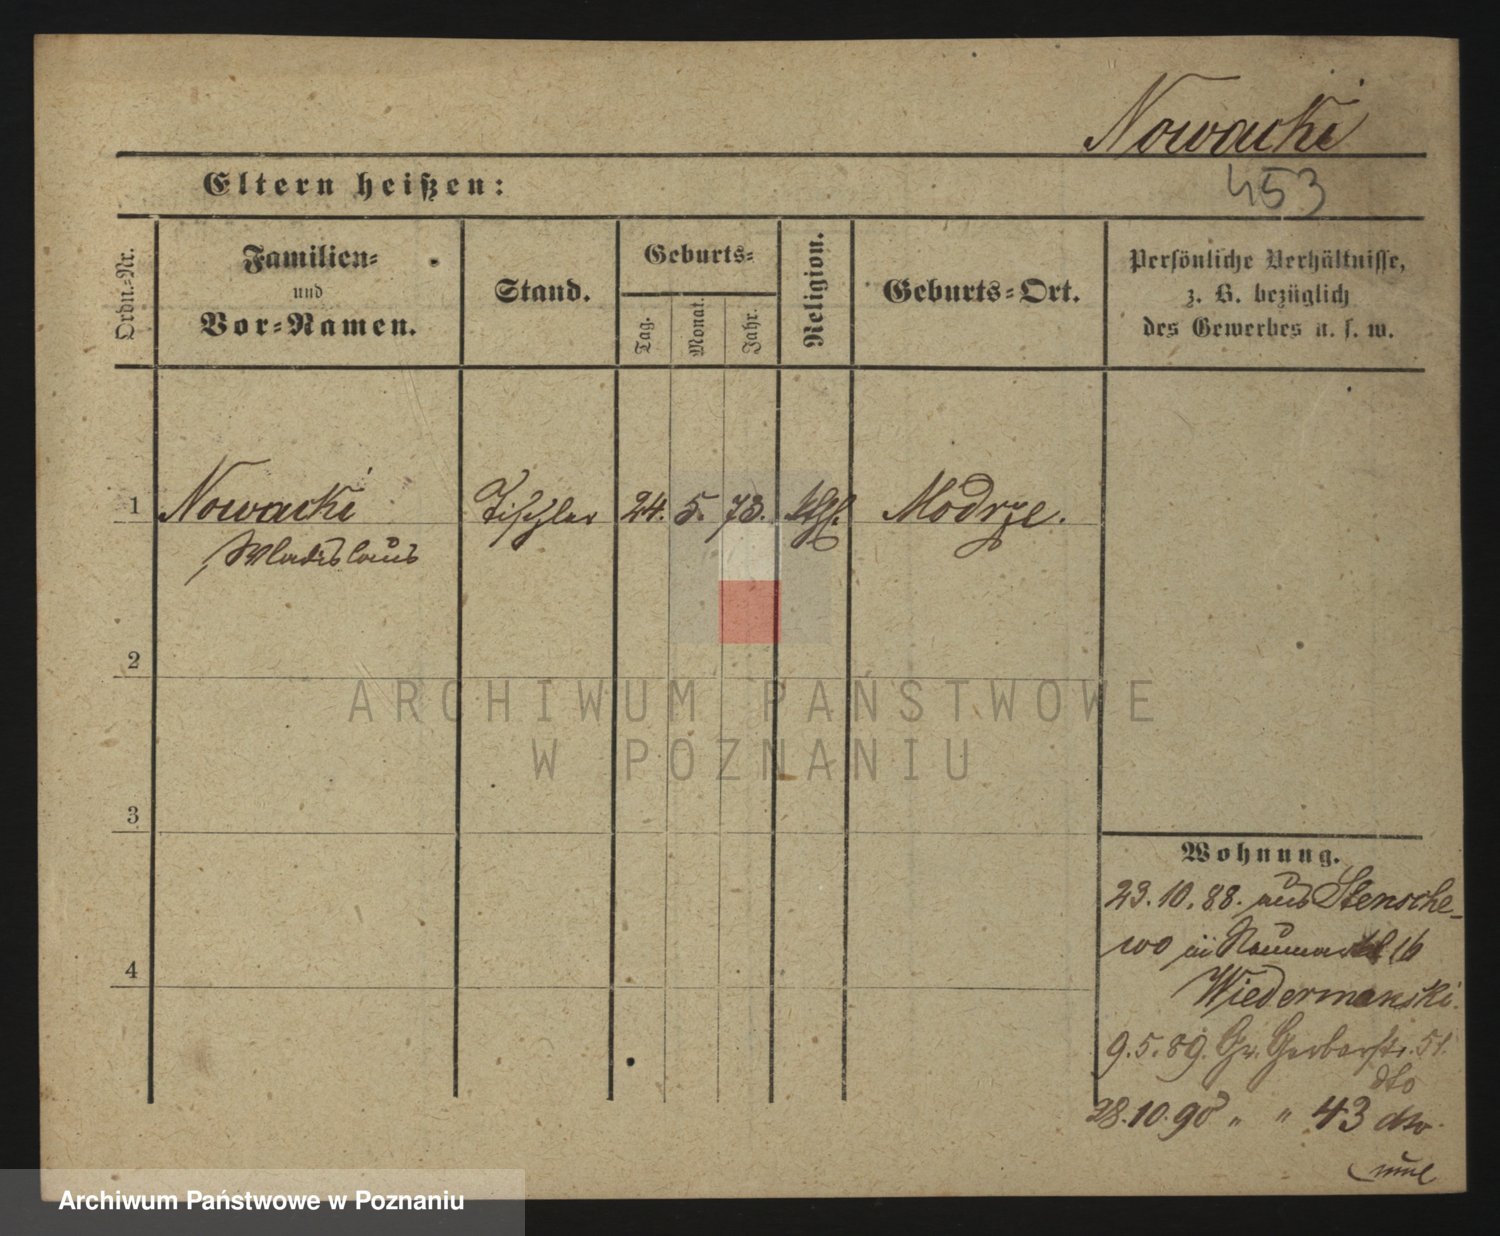 Nowacki
453
Eltern heißen:
Ordn.-Nr.
Familien-
und
Vor-Namen.
Stand.
Geburts-
Tag.
Monat.
Jahr.
Religion.
Geburts-Ort.
Persönliche Verhältnisse,
z. B. bezüglich
des Gewerbes u. s. w.
1 Nowacki Tischler 24. 5. 73. kth. Modrze.
Wladislaus
2
ARCHIWUM PAŃSTWOWE
W POZNANIU
3
Wohnung.
23.10.88. aus Stensche-
wo in Neumarkt 16
4
Wiedermanski.
9.5.89. Gr. Gerberstr. 51.
dto
28.10.90 " " 43 dto.
Archiwum Państwowe w Poznaniu